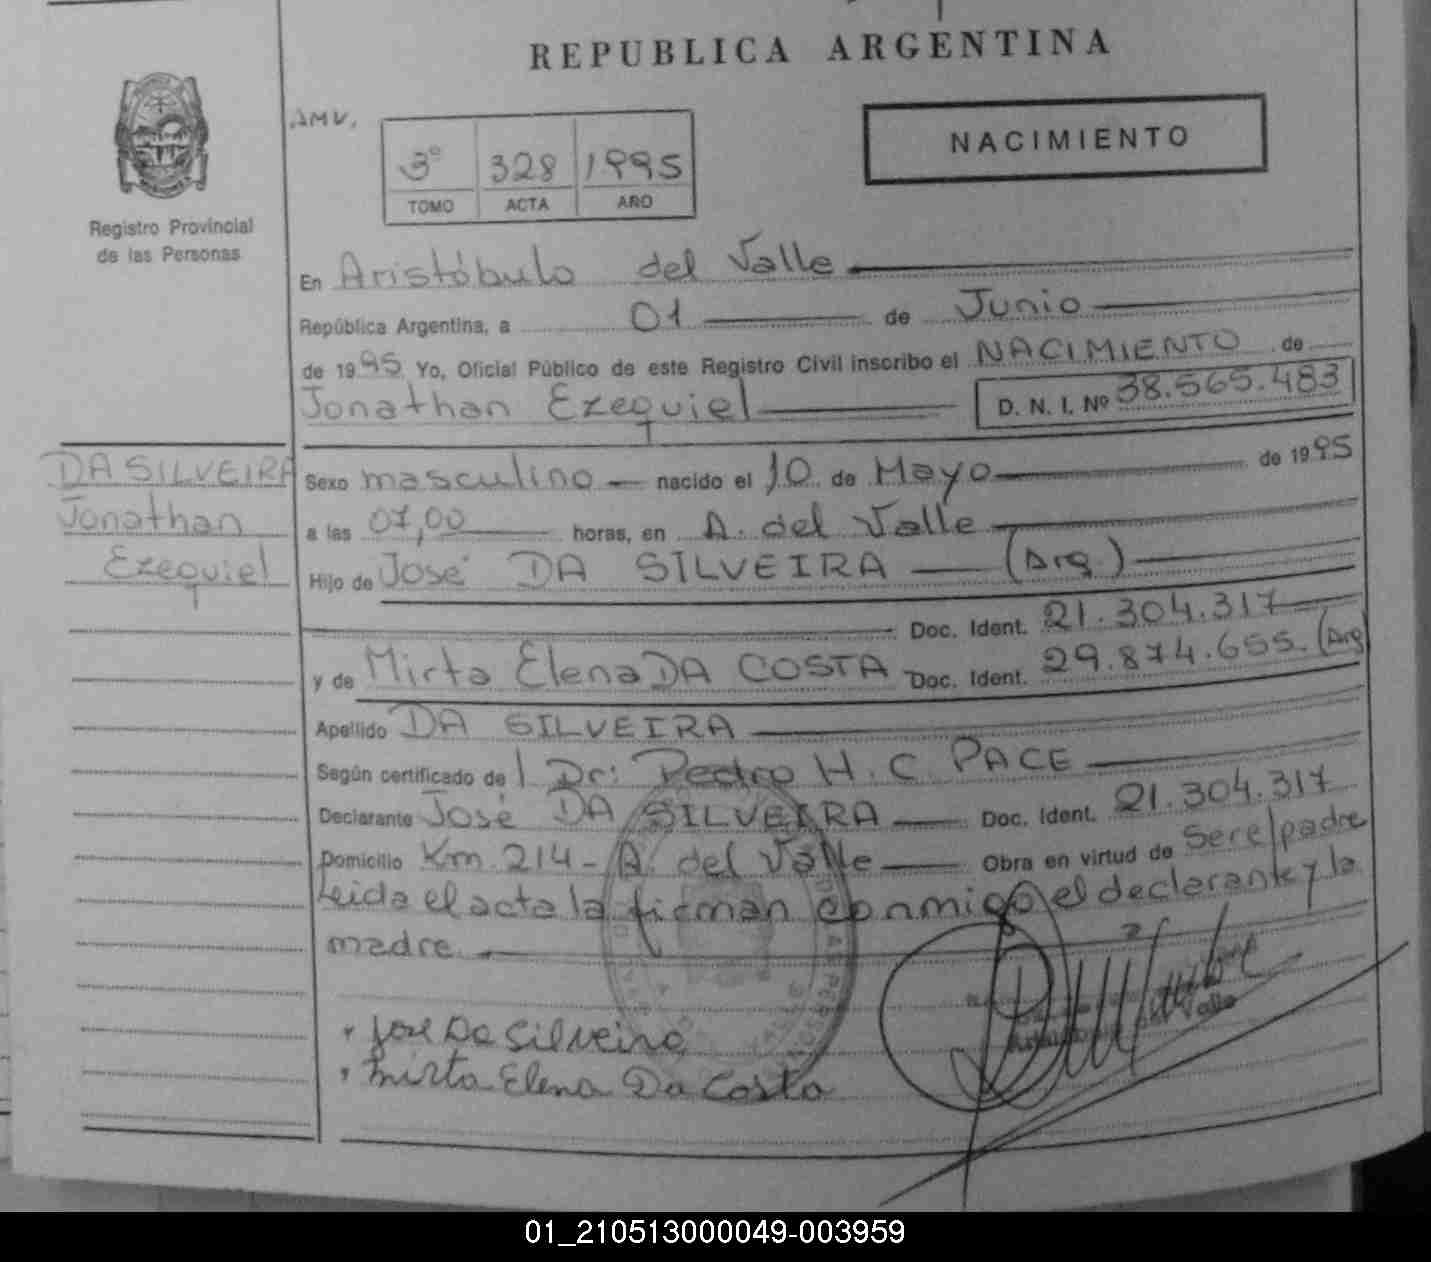 REPUBLICA ARGENTINA
Registro Provincial
de las Personas
AMV.
3º 328 1995
TOMO ACTA AÑO
NACIMIENTO
En Aristóbulo del Valle
República Argentina, a 01 de Junio
de 1995 Yo, Oficial Público de este Registro Civil inscribo el NACIMIENTO de
Jonathan Ezequiel D. N. I. Nº 38.565.483
DA SILVEIRA
Jonathan
Ezequiel
Sexo masculino nacido el 10 de Mayo de 1995
a las 07,00 horas, en A. del Valle
Hijo de José DA SILVEIRA (Arg.)
Doc. Ident. 21.304.317
y de Mirta Elena DA COSTA Doc. Ident. 29.874.655. (Arg
Apellido DA SILVEIRA
Según certificado del Dr: Pedro H. C. PACE
Declarante José DA SILVEIRA Doc. Ident. 21.304.317
Domicilio Km. 214 - A. del Valle Obra en virtud de ser el padre
Leida el acta la firman conmigo el declarante y la
madre.
Jose Da Silveira
Mirta Elena Da Costa
01_210513000049-003959